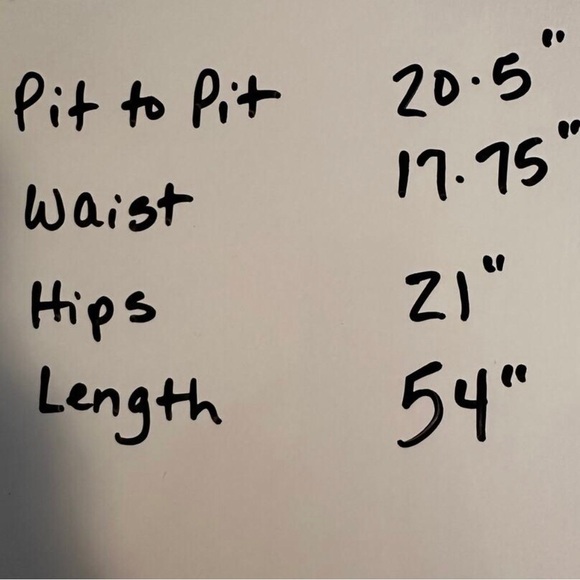 Pit to Pit 20.5"
Waist 17.75"
Hips 21"
Length 54"